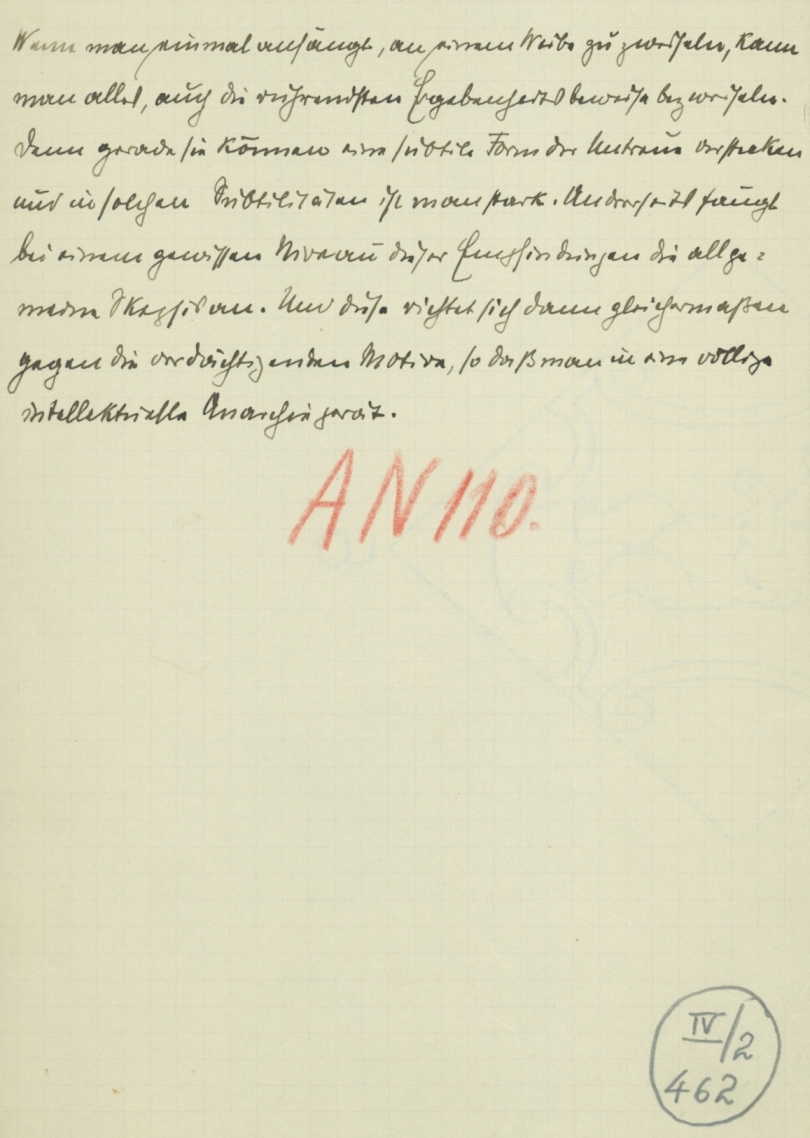 Wenn man einmal anfängt, an einem Weibe zu zweifeln, kann
man alles, auch die rührendsten Ergebenheitsbeweise bezweifeln.
Denn gerade sie können eine subtile Form der Untreue verstecken
und in solchen Subtilitäten ist man stark. Anderseits fängt
bei einem gewissen Niveau dieser Empfindungen die allge=
meine Skepsis an. Und diese richtet sich dann gleichermaßen
gegen die verdächtigenden Motive, so daß man in eine völlige
intellektuelle Anarchie gerät.
AN 110.
IV/2
462